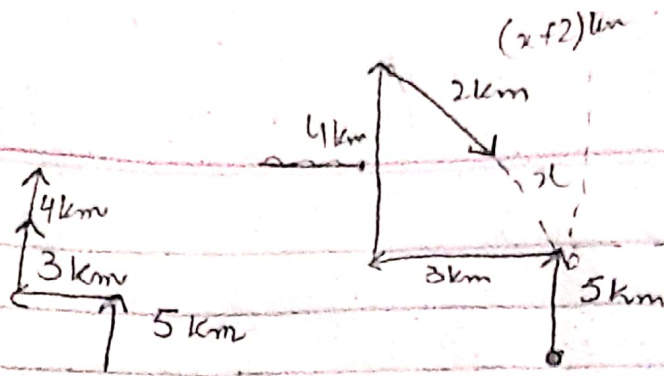 (x+2)km
2km
4km
x
4km
3km
3km
5km
5km